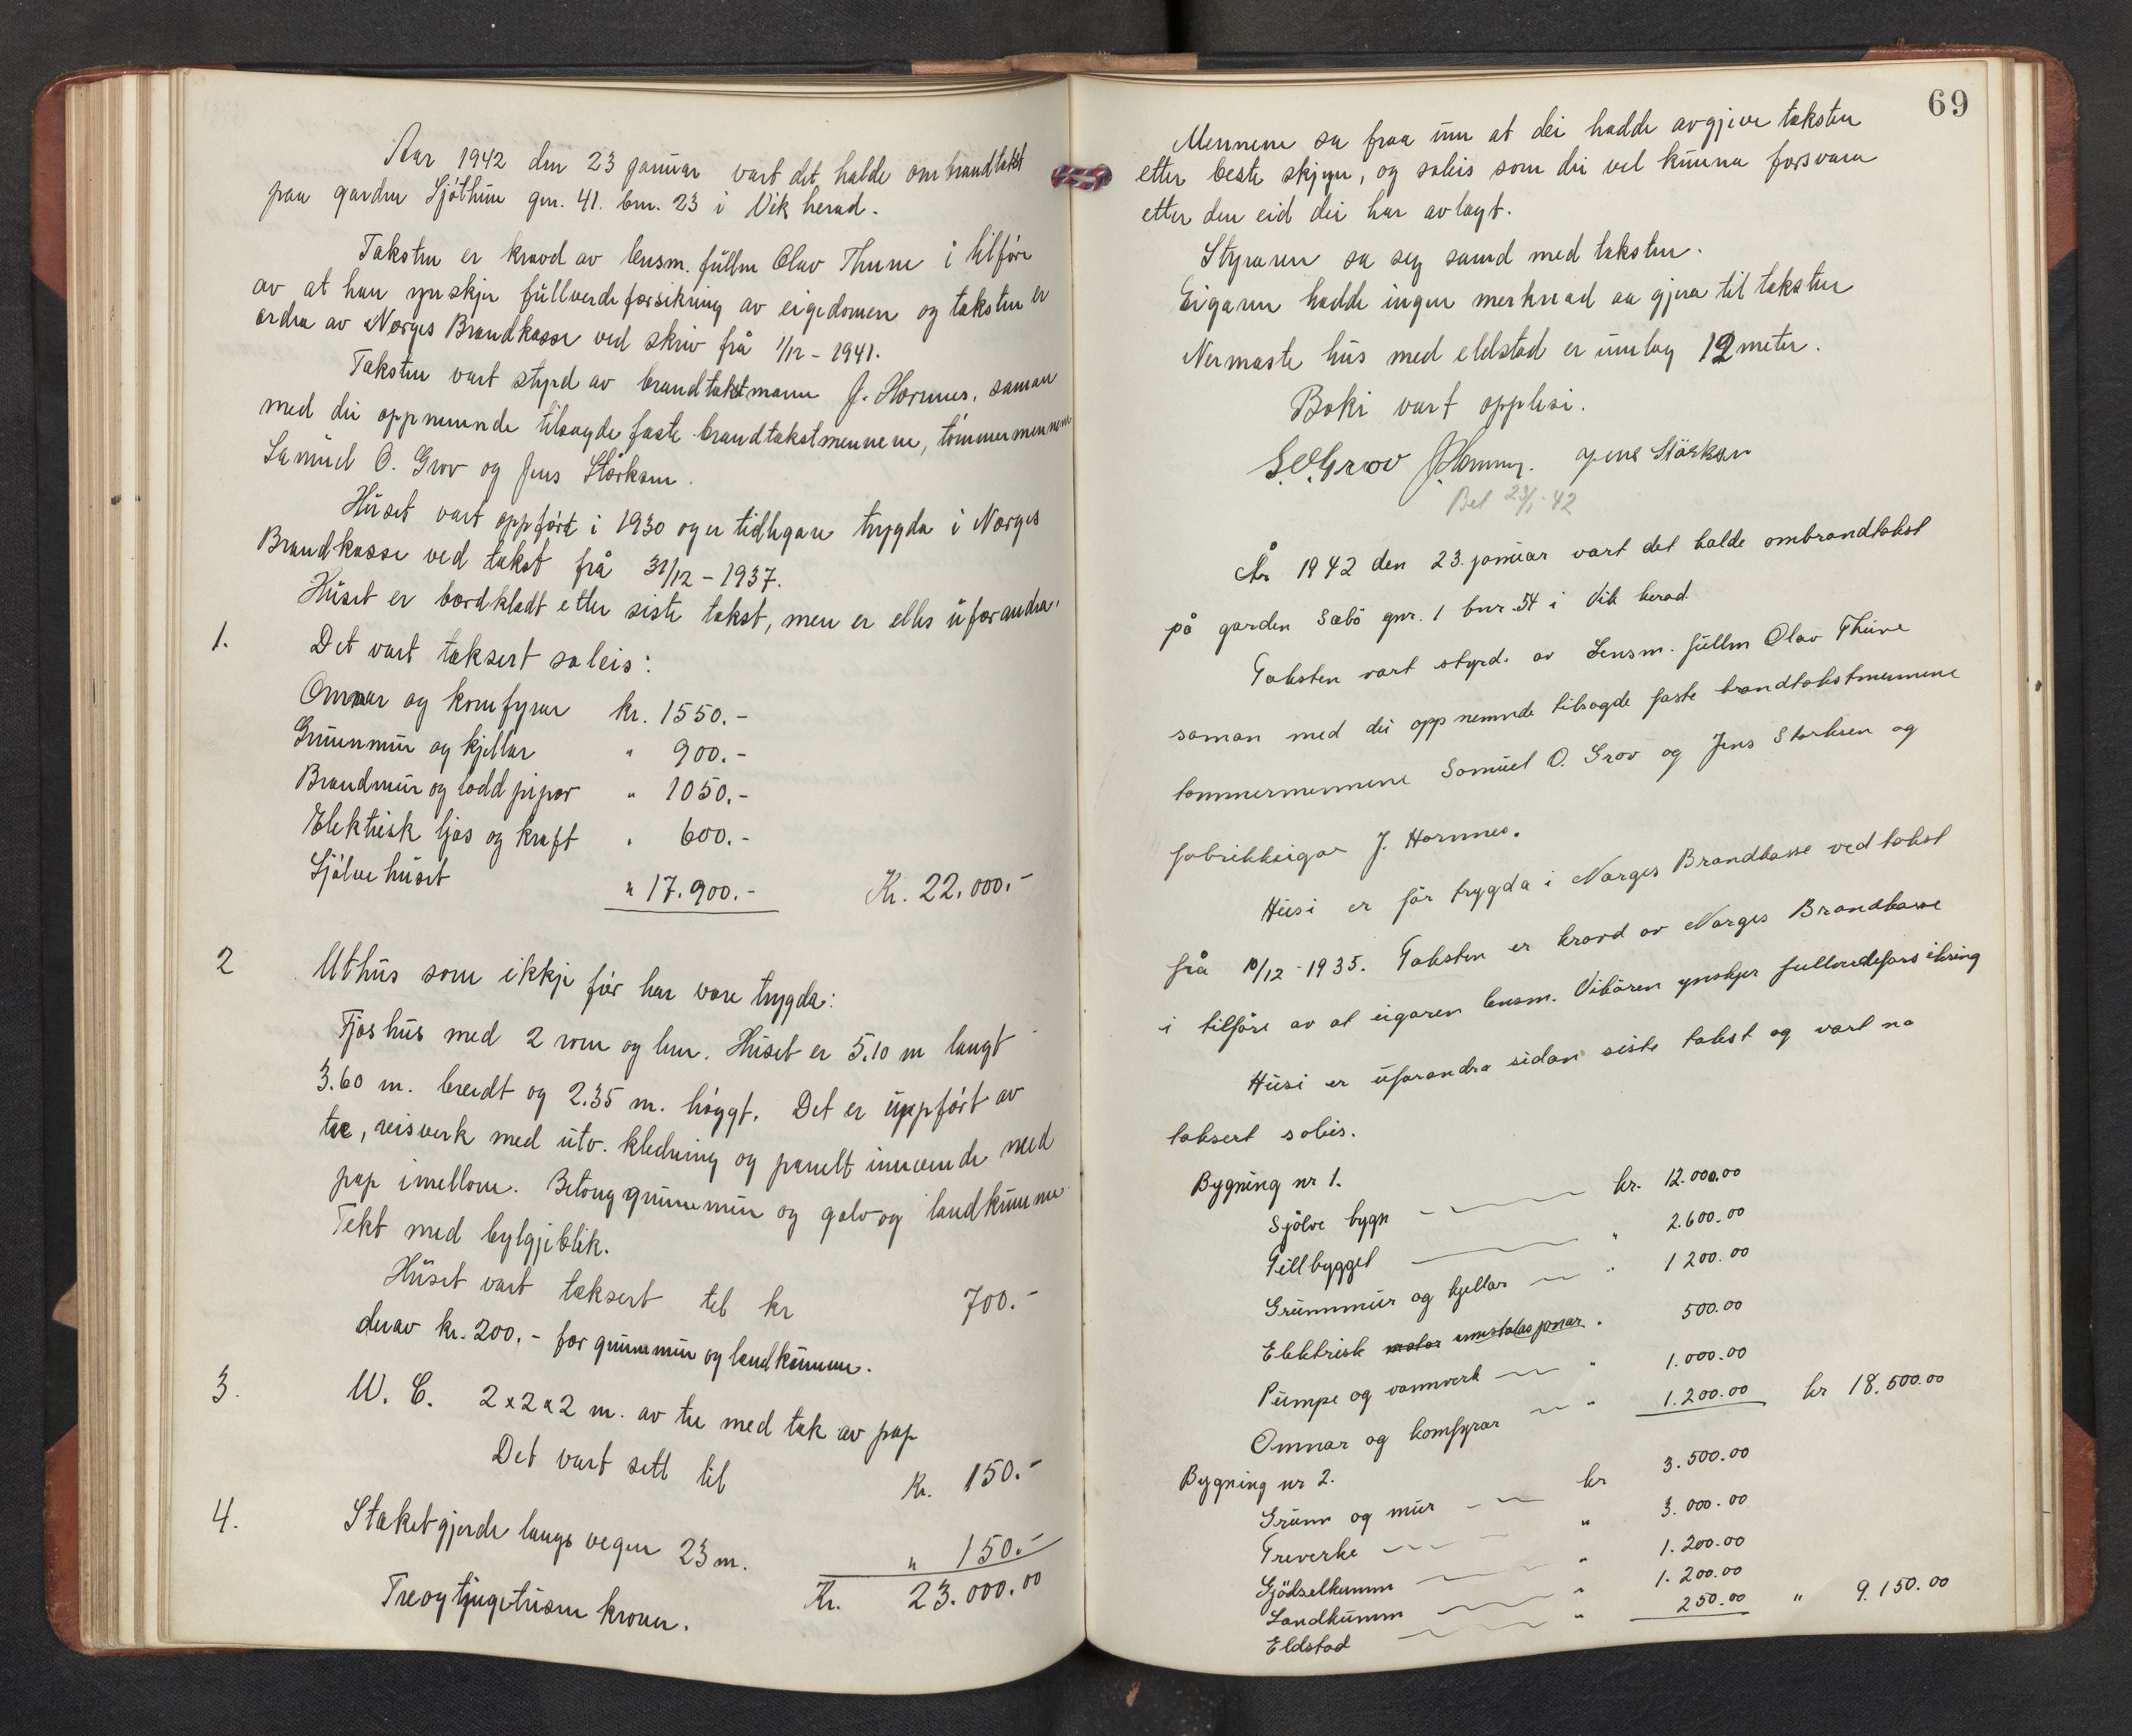 Aar 1942 den 23 januar vart det halde ombrandtakst
paa garden Sjóthun gnr. 41. bnr. 23 i Vik herad.
Taksten er kravd av lensm. fullm Olav Thune i tilføre
av at han ynskjer fullverdeforsikring av eigedomen og taksten er
ordra av Norges Brandkasse ved skriv frå 1/12 - 1941.
Taksten vart styrd av brandtakstmann J. Hornnes, saman
med dei oppnemnde tilsagde faste brandtakstmennene, tømmermennene
Samuel O. Grov og Jens Størksen.
Huset vart oppført i 1930 og er tidlegare trygda i Norges
Brandkasse ved takst frå 31/12 - 1937.
Huset er bordkledt etter siste takst, men er elles uforandra.
1. Det vart taksert saleis:
Omnar og komfyrar kr. 1550.-
Grunnmur og kjellar " 900.-
Brandmur og lodd pipor " 1050.-
Elektrisk ljos og kraft " 600.-
Sjølve huset " 17.900.- Kr. 22.000.-
2 Uthus som ikkje før har vore trygda:
Fjoshus med 2 rom og lem. Huset er 5.10 m langt
3.60 m. breidt og 2.35 m. høggt. Det er uppført av
tre, reisverk med utv. kledning og panelt innvende med
pap imellom. Betonggrunnmur og golv og landkumme
Tekt med bylgjeblik.
Huset vart taksert til kr 700.-
derav kr. 200.- for grunnmur og landkumme.
3. W. C. 2 x 2 x 2 m. av tre med tak av pap
Det vart sett til Kr. 150.-
4. Staketgjerde langs vegen 23 m. " 150.-
Kr. 23.000.00
Treogtjugetusen kroner.
69
Mennene sa fraa um at dei hadde avgjeve taksten
etter beste skjyn, og saleis som dei vel kunna forsvara
etter den eid dei har avlagt.
Styraren sa seg samd med taksten.
Eigaren hadde ingen merknad aa gjera til taksten
Nermaste hus med eldstad er umlag 12 meter.
Boki vart opplesi.
S.O. Grov J. Hornnes. Jens Størksen
Bet 23/1-42
År 1942 den 23. januar vart det halde ombrandtakst
på garden Sæbö gnr. 1 bnr. 54 i Vik herad.
Taksten vart styrd. av Lensm. fullm Olav Thune
saman med dei oppnemnde tilsagde faste brandtakstmennene
tommermennene Samuel O. Grov og Jens Storksen og
fabrikkeigar J. Hornnes.
Husi er för trygda i Norges Brandkasse ved takst
frå 10/12 - 1935. Taksten er kravd av Norges Brandkasse
i tilföre av at eigaren lensm. Vikören ynskjer fullverdeforsikring
Husi er uforandra sidan siste takst og vart no
taksert soleis.
Bygning nr 1.
Sjölve bygn kr. 12.000.00
Tillbygget " 2.600.00
Grunnmur og kjellar " 1200.00
Elektrisk motor innstalasjonar. 500.00
Pumpe og vannverk " 1.000.00
Omnar og komfyrar " 1.200.00 kr 18.500.00
Bygning nr 2.
Grunn og mur kr 3.500.00
Treverke " 3.000.00
Gjödselkumm " 1.200.00
Landkumm " 1.200.00
Eldstad " 250.00 " 9.150.00